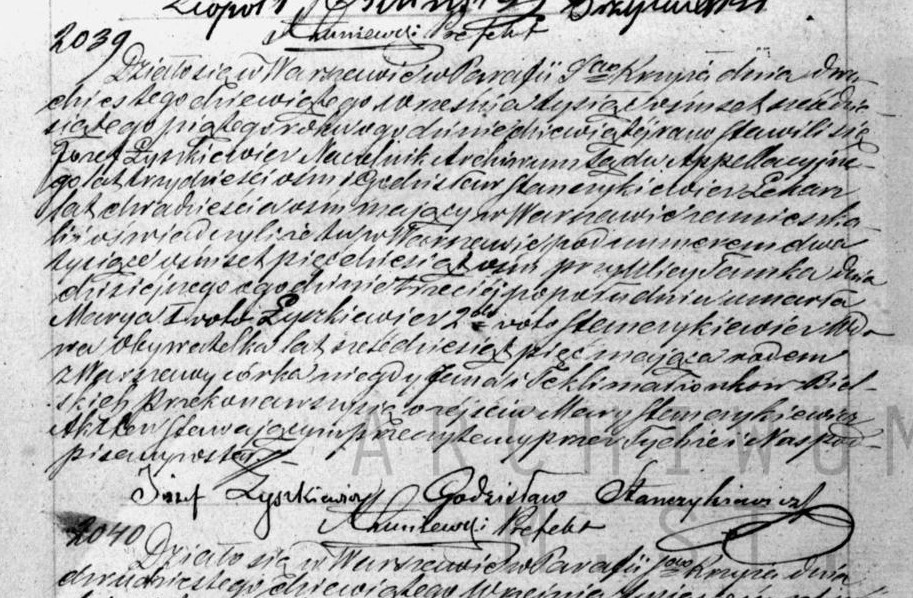 2039
Chmielewski Prefekt
Działo się w Warszawie w Parafii Sgo Krzyża dnia dwu-
dziestego dziewiątego Września tysiąc ośmset sześćdzie-
siątego piątego roku o godzinie dziewiątéj rano stawili się
Józef Łyszkiewicz Naczelnik Archiwum Sądu Appellacyjne-
go lat trzydzieści ośm i Godzisław Stanczykiewicz Lekarz
lat dwadzieścia ośm mający w Warszawie zamieszka-
li i oświadczyli że tu w Warszawie pod numerem dwa
tysiące ośmset piędziesiąt ośm przy ulicy Tamka dnia
dzisiejszego o godzinie trzeciéj popołudniu umarła
Marya I voto Łyszkiewicz 2do voto Stanczykiewicz Wdo-
wa Obywatelka lat sześćdziesiąt pięć mająca rodem
z Warszawy córka niegdy Jana i Tekli małżonków Biel-
skich Przekonawszy się o zejściu Maryi Stanczykiewicz
Akt ten stawającym przeczytany przez Tychże i Nas pod-
pisany został
Józef Łyszkiewicz Godzisław Stanczykiewicz
Chmielewski Prefekt
2040
Działo się w Warszawie w Parafii Sgo Krzyża dnia
dwudziestego dziewiątego Września
ARCHIWUM